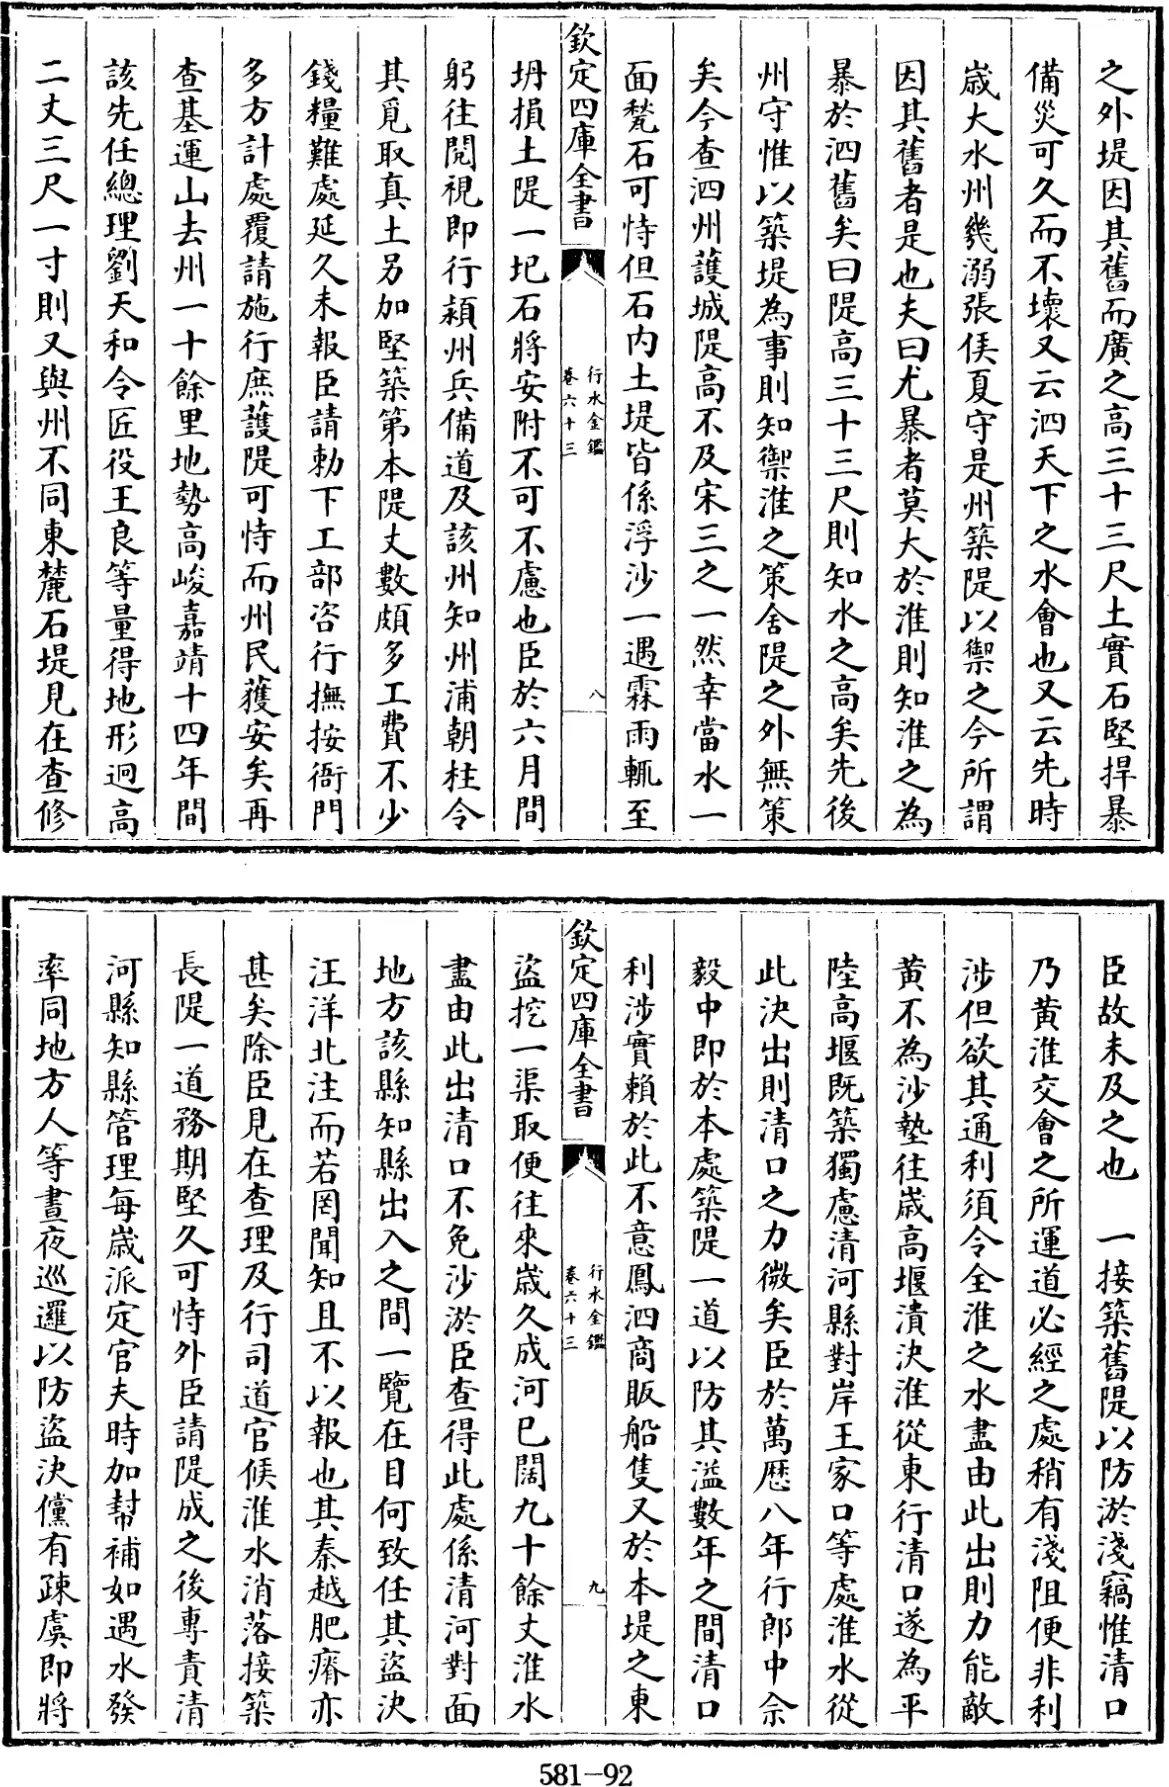 之外堤因其舊而廣之高三十三尺土實石堅捍暴
備災可久而不壞又云泗天下之水會也又云先時
歲大水州幾溺張侯夏守是州築隄以禦之今所謂
因其舊者是也夫曰尤暴者莫大於淮則知淮之為
暴於泗舊矣曰隄高三十三尺則知水之高矣先後
州守惟以築堤為事則知禦淮之策舍隄之外無策
矣今查泗州護城隄高不及宋三之一然幸當水一
面甃石可恃但石内土堤皆係浮沙一遇霖雨輒至
欽定四庫全書
行水金鑑
卷六十三
八
坍損土隄一圮石將安附不可不慮也臣於六月間
躬往閱視即行潁州兵備道及該州知州浦朝柱令
其覓取真土另加堅築第本隄丈數頗多工費不少
錢糧難處延久未報臣請勅下工部咨行撫按衙門
多方計處覆請施行庶護隄可恃而州民獲安矣再
查基運山去州一十餘里地勢高峻嘉靖十四年間
該先任總理劉天和令匠役王良等量得地形迥高
二丈三尺一寸則又與州不同東麓石堤見在查修
臣故未及之也　一接築舊隄以防淤淺竊惟清口
乃黄淮交會之所運道必經之處稍有淺阻便非利
涉但欲其通利須令全淮之水盡由此出則力能敵
黄不為沙墊往歲高堰潰決淮從東行清口遂為平
陸高堰既築獨慮清河縣對岸王家口等處淮水從
此決出則清口之力微矣臣於萬厯八年行郎中佘
毅中即於本處築隄一道以防其溢數年之間清口
利涉實賴於此不意鳳泗商販船隻又於本堤之東
欽定四庫全書
行水金鑑
卷六十三
九
盜挖一渠取便往來歲久成河已闊九十餘丈淮水
盡由此出清口不免沙淤臣查得此處係清河對面
地方該縣知縣出入之間一覽在目何致任其盜決
汪洋北注而若罔聞知且不以報也其秦越肥瘠亦
甚矣除臣見在查理及行司道官候淮水消落接築
長隄一道務期堅久可恃外臣請隄成之後專責清
河縣知縣管理每歲派定官夫時加幇補如遇水發
率同地方人等晝夜巡邏以防盜決儻有疎虞即將
581-92